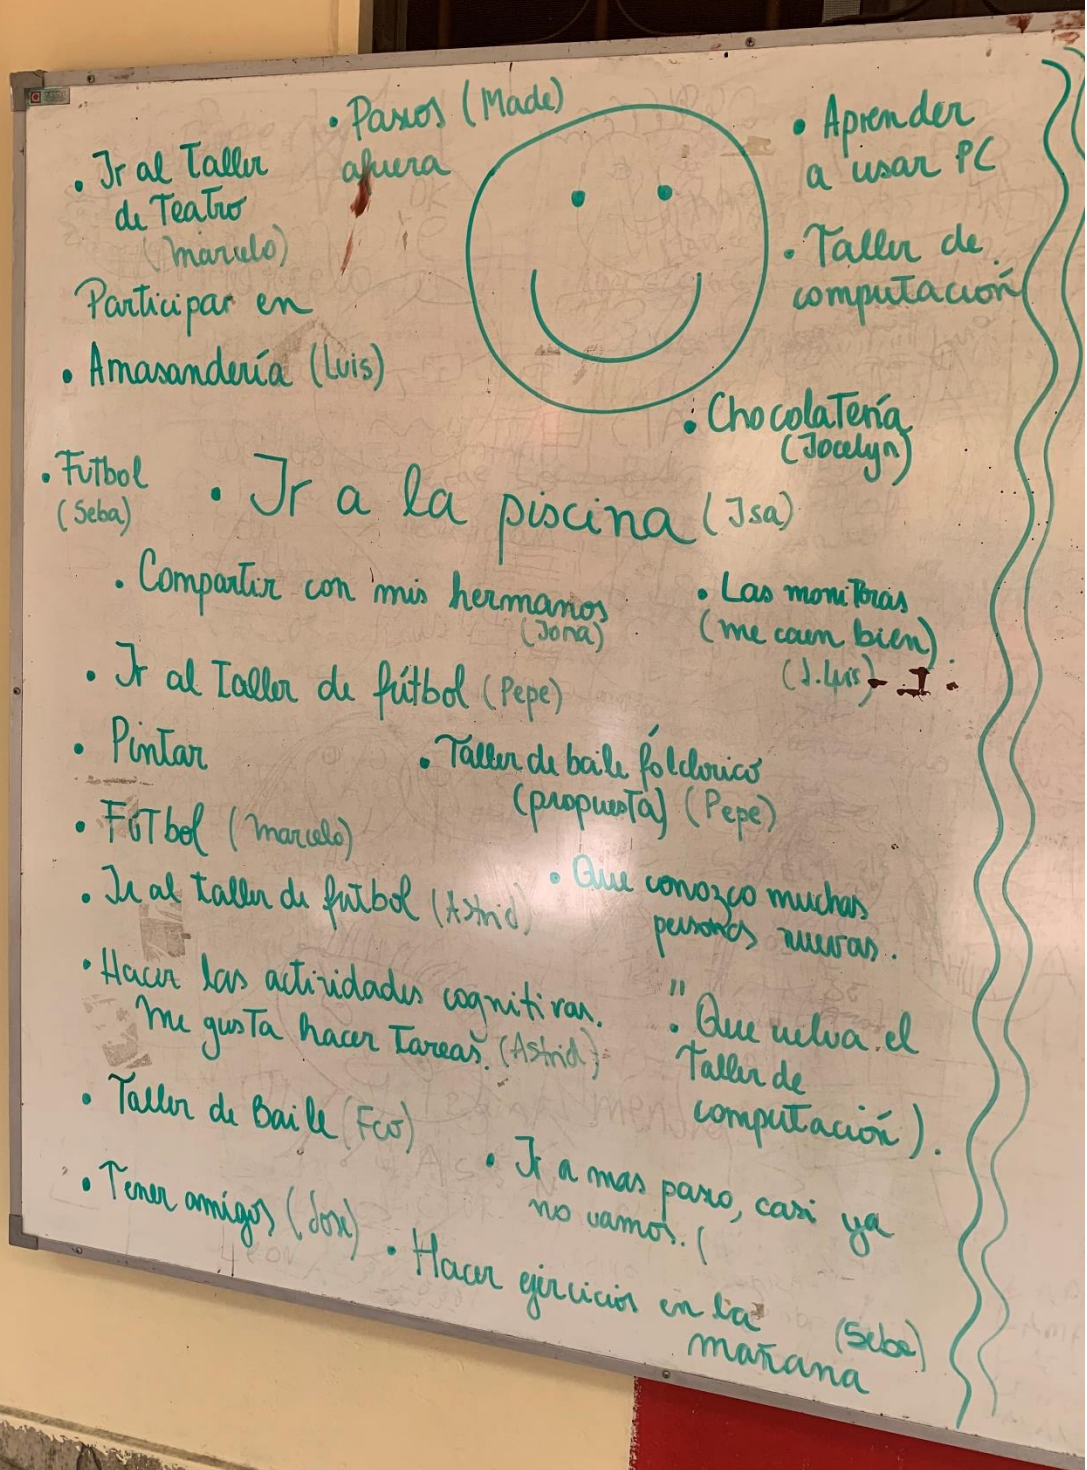 • Paseos (Made)
afuera
• Ir al Taller
de Teatro
(Marcelo)
Participar en
• Amasandería (Luis)
• Aprender
a usar PC
• Taller de
computación
• Chocolatería
(Jocelyn)
• Futbol
(Seba)
• Ir a la piscina (Isa)
• Compartir con mis hermanos
(Jona)
• Las monitoras
(me caen bien)
(J. Luis)
• Ir al Taller de fútbol (Pepe)
• Pintar
• Taller de baile fólclorico
(propuesta) (Pepe)
• Fútbol (Marcelo)
• Ir al taller de futbol (Astrid)
• Que conozco muchas
personas nuevas.
• Hacer las actividades cognitivas.
Me gusta hacer Tareas. (Astrid)
"
• Que velva el
Taller de
computación).
• Taller de Baile (Fco)
• Tener amigos (Jose)
• Ir a mas paseo, casi ya
no vamos. (
• Hacer ejercicios en la
mañana
(Seba)